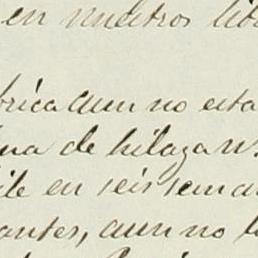 en nuestros lib
brica aun no esta
ina de hilaza n
ile en seis seman
antes, aun no l